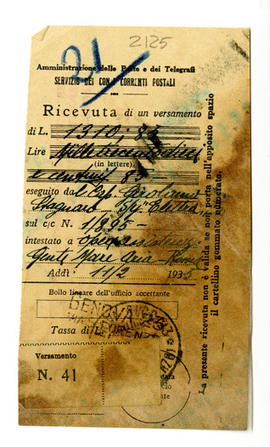 2125
21
Amministrazione delle Poste e dei Telegrafi
SERVIZIO DEI CONTI CORRENTI POSTALI
Ricevuta di un versamento
di L. 1310.85
Lire Milletrecentodieci
(in lettere)
e centesimi 85
eseguito da Cap. Girolamo
Stagnaro - "Elettra"
sul c/c N. 1/835
intestato a
Gente Mare Aria - Roma
Addì 11/2 1935
Bollo lineare dell'ufficio accettante
GENOVA
Tassa di L.
Versamento
N. 41
La presente ricevuta non è valida se non porta nell'apposito spazio
il cartellino gommato numerato.